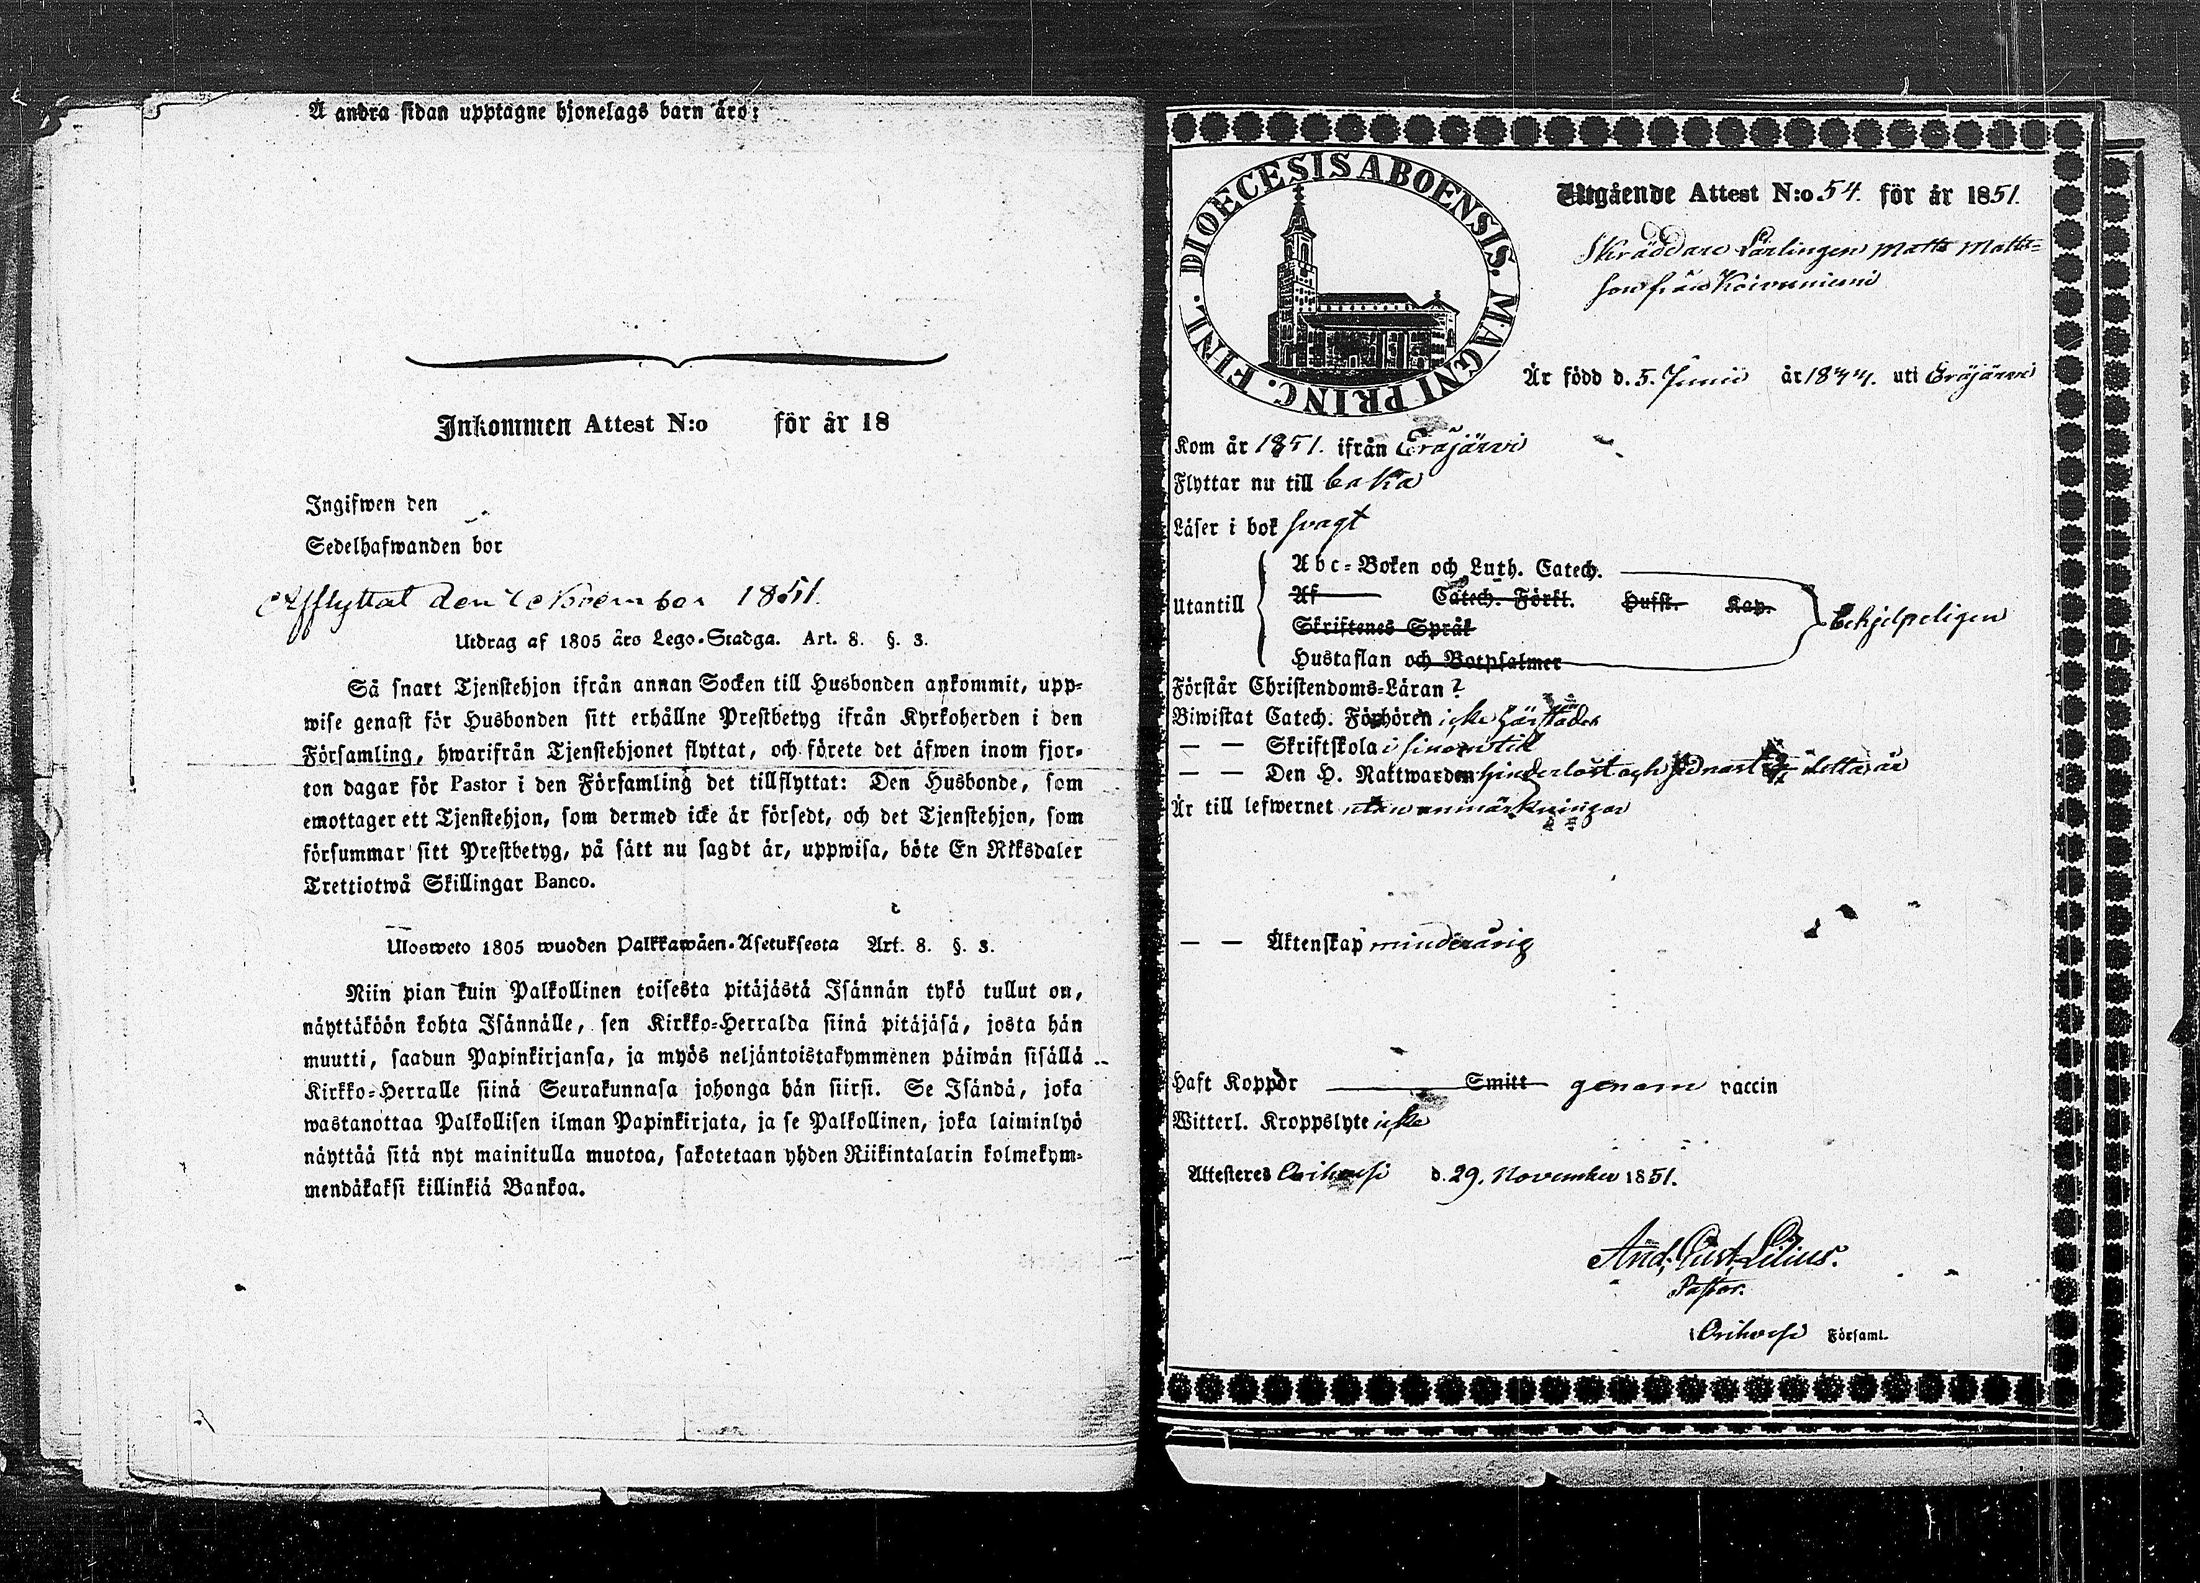 Å andra sidan upptagne hjonelags barn äro:
Inkommen Attest N:o för år 18
Ingifwen den
Sedelhafwanden bor
Afflyttat den November 1851.
Utdrag af 1805 års Lego-Stadga. Art. 8. §. 3.
Så snart Tjenstehjon ifrån annan Socken till Husbonden ankommit, upp-
wise genast för Husbonden sitt erhållne Prestbetyg ifrån Kyrkoherden i den
Församling, hwarifrån Tjenstehjonet flyttat, och förete det äfwen inom fjor-
ton dagar för Pastor i den Församling det tillflyttat: Den Husbonde, som
emottager ett Tjenstehjon, som dermed icke är försedt, och det Tjenstehjon, som
försummar sitt Prestbetyg, på sätt nu sagdt är, uppwisa, böte En Riksdaler
Trettiotwå Skillingar Banco.
Ulosweto 1805 wuoden Palkkawäen-Asetuksesta Art. 8. §. 3.
Niin pian kuin Palkollinen toisesta pitäjästä Isännän tykö tullut on,
näyttäköön kohta Isännälle, sen Kirkko-Herralda siinä pitäjäsä, josta hän
muutti, saadun Papinkirjansa, ja myös neljäntoistakymmenen päiwän sisällä
Kirkko-Herralle siinä Seurakunnasa johonga hän siirsi. Se Isändä, joka
wastanottaa Palkollisen ilman Papinkirjata, ja se Palkollinen, joka laiminlyö
näyttää sitä nyt mainitulla muotoa, sakotetaan yhden Riikintalarin kolmekym-
mendäkaksi killinkiä Bankoa.
DIOECESIS ABOENSIS. MAGNI PRINC. FINL.
Utgående Attest N:o 54. för år 1851.
Skräddare Lärlingen Matts Matts-
son från Koivuniemi
Är född d. 5. Junii år 1844. uti Eräjärvi
Kom år 1851. ifrån Eräjärvi
Flyttar nu till baka
Läser i bok svagt
Utantill
Abc-Boken och Luth. Catech.
Af Catech. Förkl. Hufst. Kap.
Skriftenes Språk
Hustaflan och Botpsalmer
behjelpeligen
Förstår Christendoms-Läran?
Biwistat Catech. Förhören icke härstädes
— — Skriftskola i sinom tid
— — Den H. Nattwarden och detta år
Är till lefwernet utan anmärkningar
— — Äktenskap minderårig
Haft Koppor Smitt genom vaccin
Witterl. Kroppslyte icke
Attesteres Orihvesi d. 29. November 1851.
And. Gust. Lilius.
Pastor.
i Orihvesi Församl.